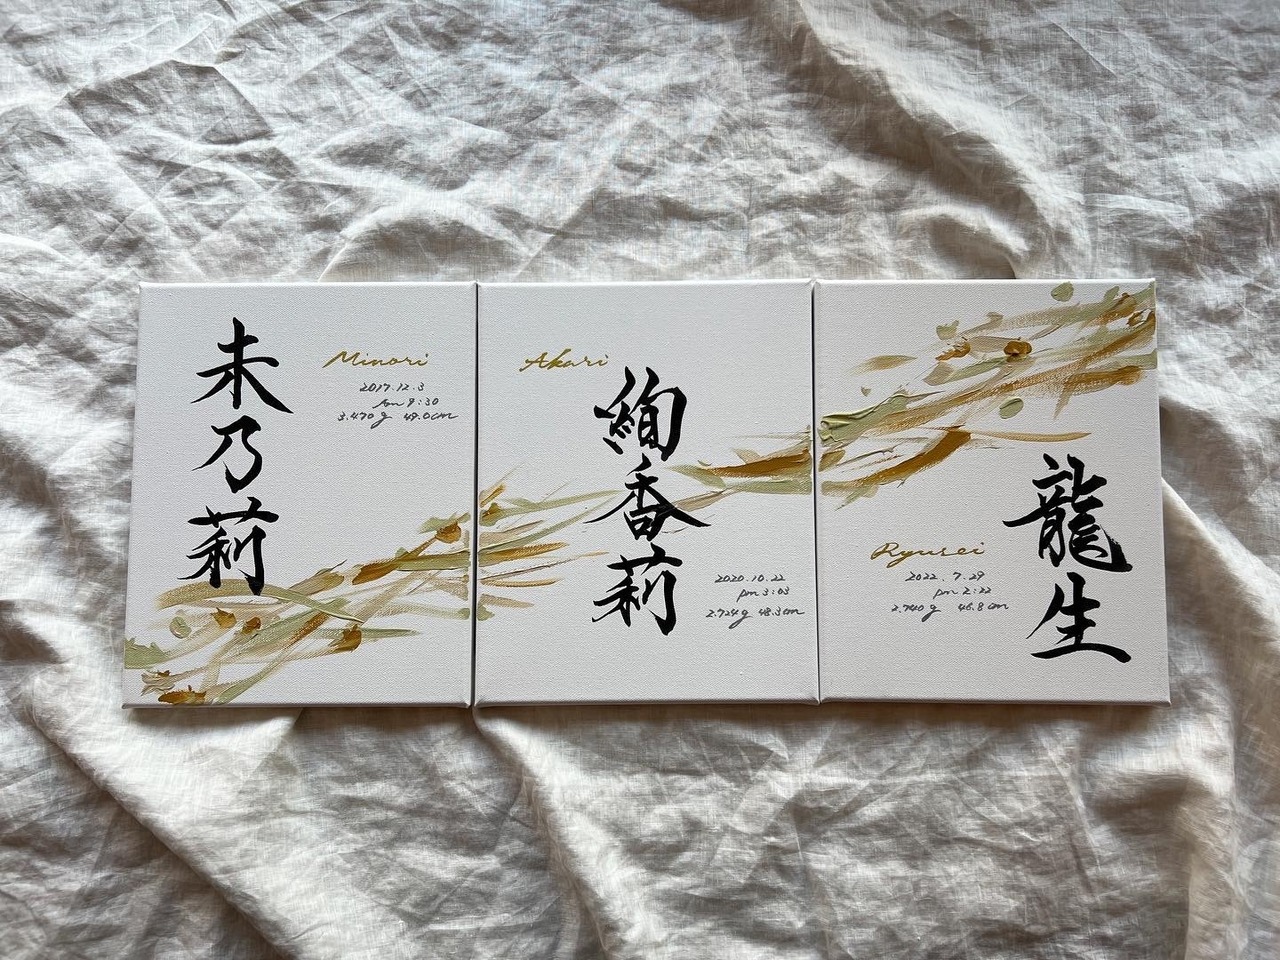 未乃莉
Minori
2017.12.3
pm 9:30
3.470g 49.0cm
Akari
絢香莉
2020.10.22
pm 3:03
2.724g 48.3cm
龍生
Ryusei
2022.7.29
pm 2:22
2.740g 46.8cm